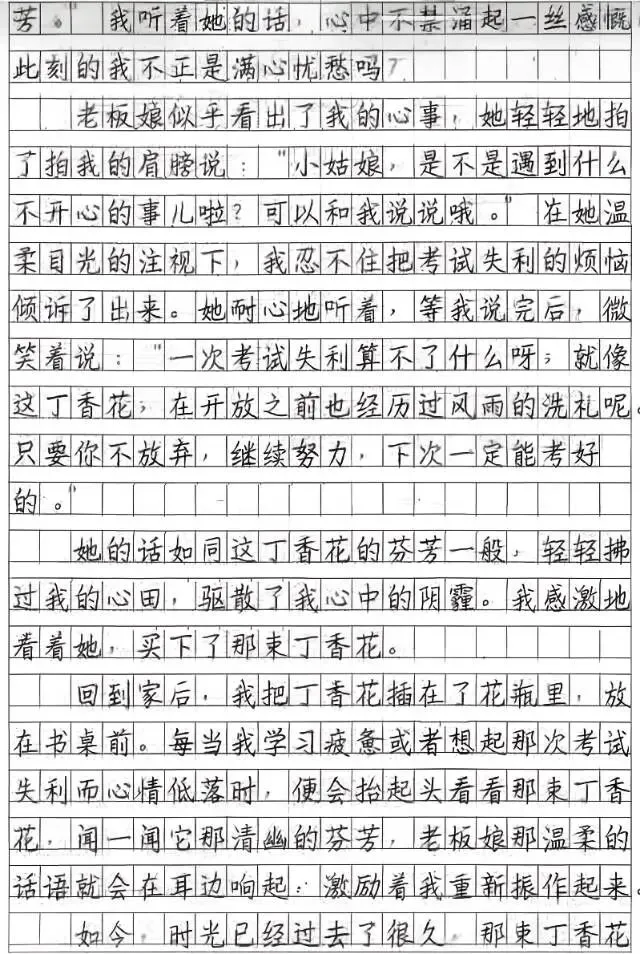 芳。"我听着她的话，心中不禁涌起一丝感慨，
此刻的我不正是满心忧愁吗？
老板娘似乎看出了我的心事，她轻轻地拍
了拍我的肩膀说："小姑娘，是不是遇到什么
不开心的事儿啦？可以和我说说哦。"在她温
柔目光的注视下，我忍不住把考试失利的烦恼
倾诉了出来。她耐心地听着，等我说完后，微
笑着说："一次考试失利算不了什么呀；就像
这丁香花；在开放之前也经历过风雨的洗礼呢。
只要你不放弃，继续努力，下次一定能考好
的。"
她的话如同这丁香花的芬芳一般，轻轻拂
过我的心田，驱散了我心中的阴霾。我感激地
看着她，买下了那束丁香花。
回到家后，我把丁香花插在了花瓶里，放
在书桌前。每当我学习疲惫或者想起那次考试
失利而心情低落时，便会抬起头看看那束丁香
花，闻一闻它那清幽的芬芳，老板娘那温柔的
话语就会在耳边响起；激励着我重新振作起来。
如今，时光已经过去了很久，那束丁香花